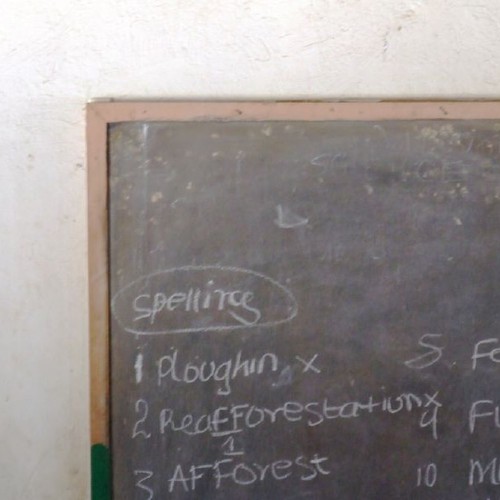 Spelling
1 Ploughin x
2 ReaFForestation x
1
3 AFForest
5.
9
10